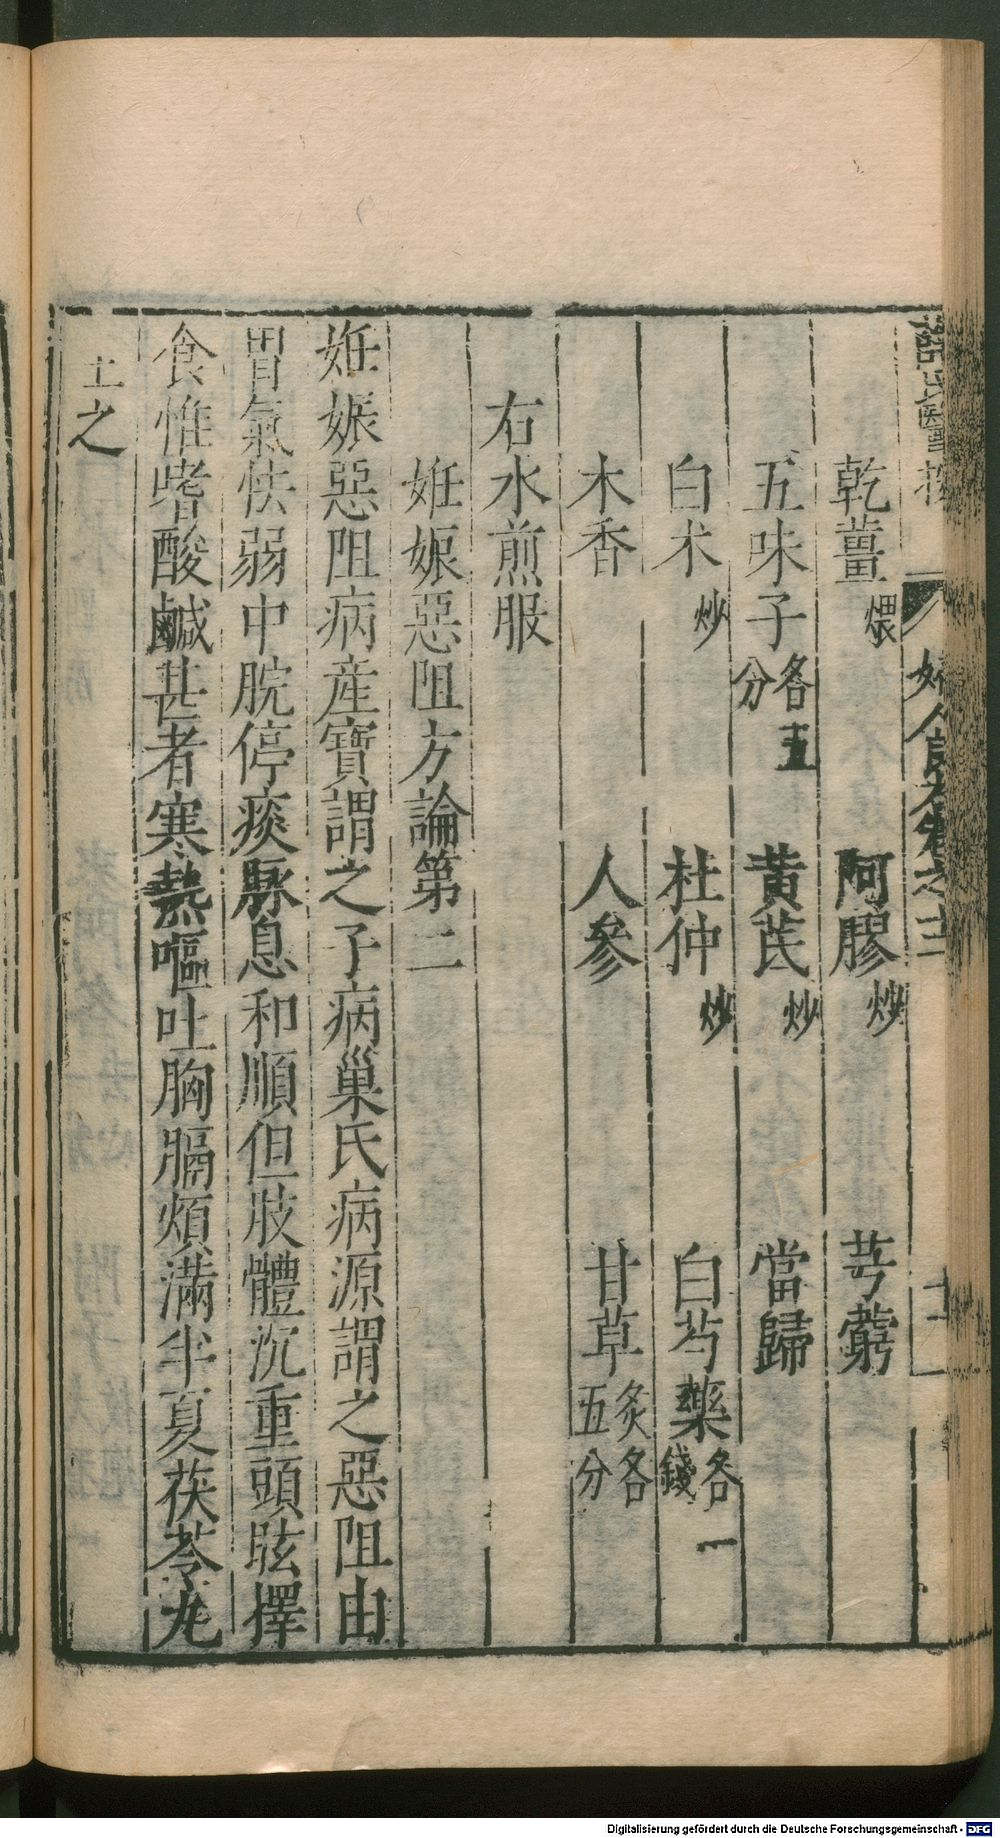 薛氏醫按 婦人良方卷之十二 十一
乾薑煨 阿膠炒 芎藭
五味子各五分 黃茋炒 當歸
白朮炒 杜仲炒 白芍藥各一錢
木香 人參 甘草炙各五分
右水煎服
妊娠惡阻方論第二
妊娠惡阻病產寶謂之子病巢氏病源謂之惡阻由
胃氣怯弱中脘停痰脉息和順但肢體沉重頭眩擇
食惟嗜酸鹹甚者寒熱嘔吐胸膈煩滿半夏茯苓丸
主之
Digitalisierung gefördert durch die Deutsche Forschungsgemeinschaft - DFG